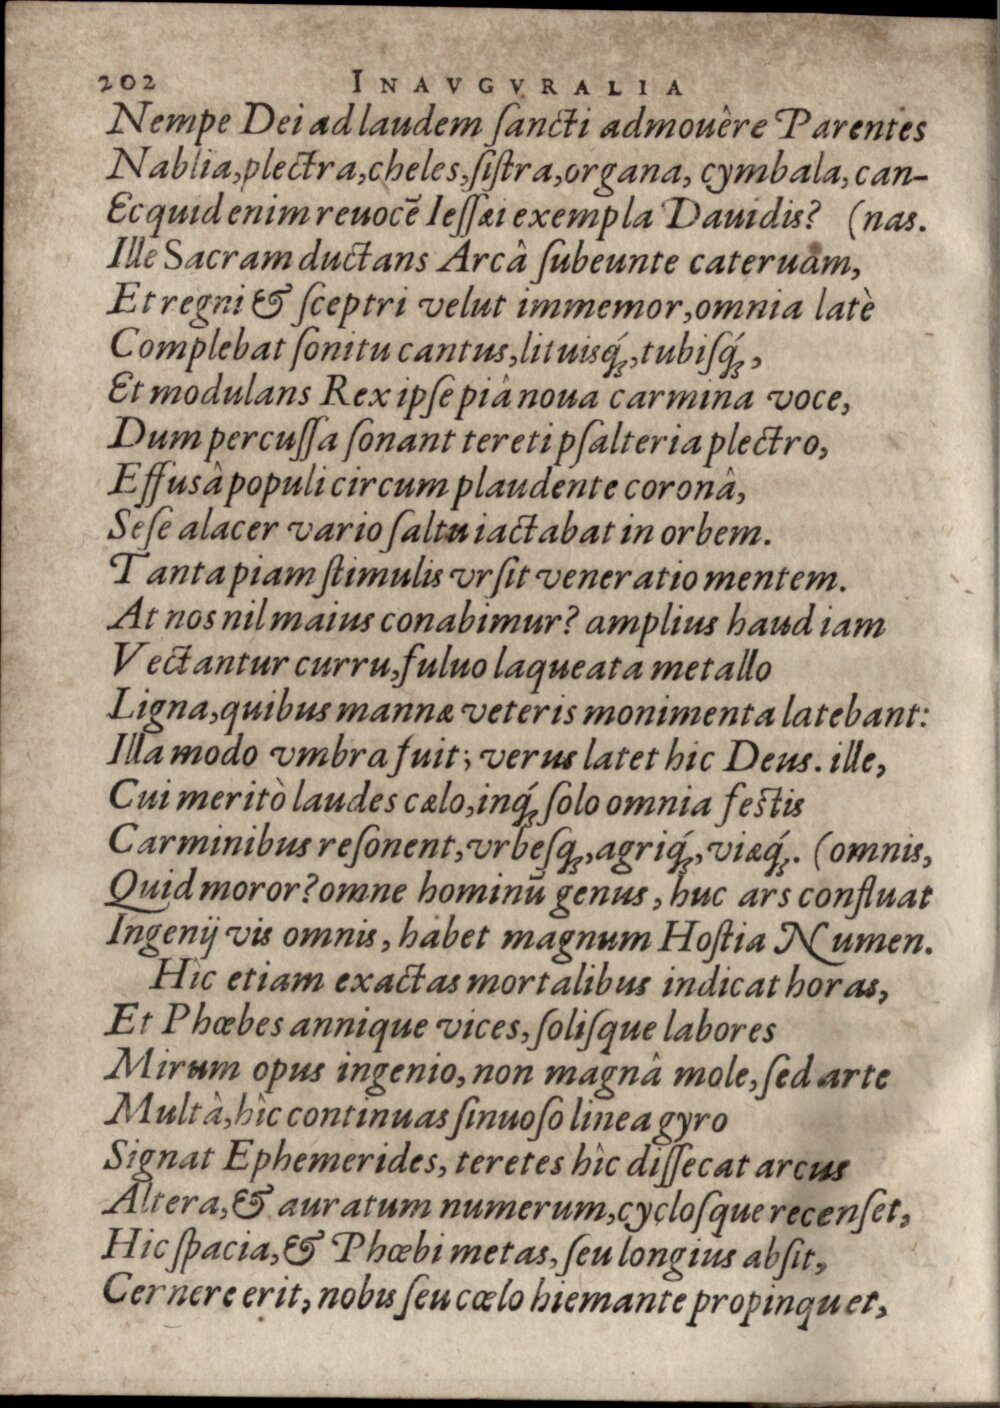 202 INAVGVRALIA
Nempe Dei ad laudem ſancti admouêre Parentes
Nablia, plectra, cheles, ſiſtra, organa, cymbala, can-
Ecquid enim reuocē Ieſſæi exempla Dauidis? (nas.
Ille Sacram ductans Arcâ ſubeunte cateruam,
Et regni & ſceptri velut immemor, omnia latè
Complebat ſonitu cantus, lituisq́;, tubiſq́;,
Et modulans Rex ipſe piâ noua carmina voce,
Dum percuſſa ſonant tereti pſalteria plectro,
Effusâ populi circum plaudente coronâ,
Seſe alacer vario ſaltu iactabat in orbem.
Tanta piam ſtimulis vrſit veneratio mentem.
At nos nil maius conabimur? amplius haud iam
Vectantur curru, fuluo laqueata metallo
Ligna, quibus mannæ veteris monimenta latebant:
Illa modo vmbra fuit; verus latet hic Deus. ille,
Cui meritò laudes cælo, inq́; ſolo omnia feſtis
Carminibus reſonent, vrbeſq́;, agriq́;, viæq́;. (omnis,
Quid moror? omne hominū genus, huc ars confluat
Ingenij vis omnis, habet magnum Hoſtia Numen.
Hìc etiam exactas mortalibus indicat horas,
Et Phœbes annique vices, ſoliſque labores
Mirum opus ingenio, non magnâ mole, ſed arte
Multâ, hîc continuas ſinuoſo linea gyro
Signat Ephemerides, teretes hîc diſſecat arcus
Altera, & auratum numerum, cycloſque recenſet,
Hic ſpacia, & Phœbi metas, ſeu longius abſit,
Cernere erit, nobis ſeu cœlo hiemante propinquet,